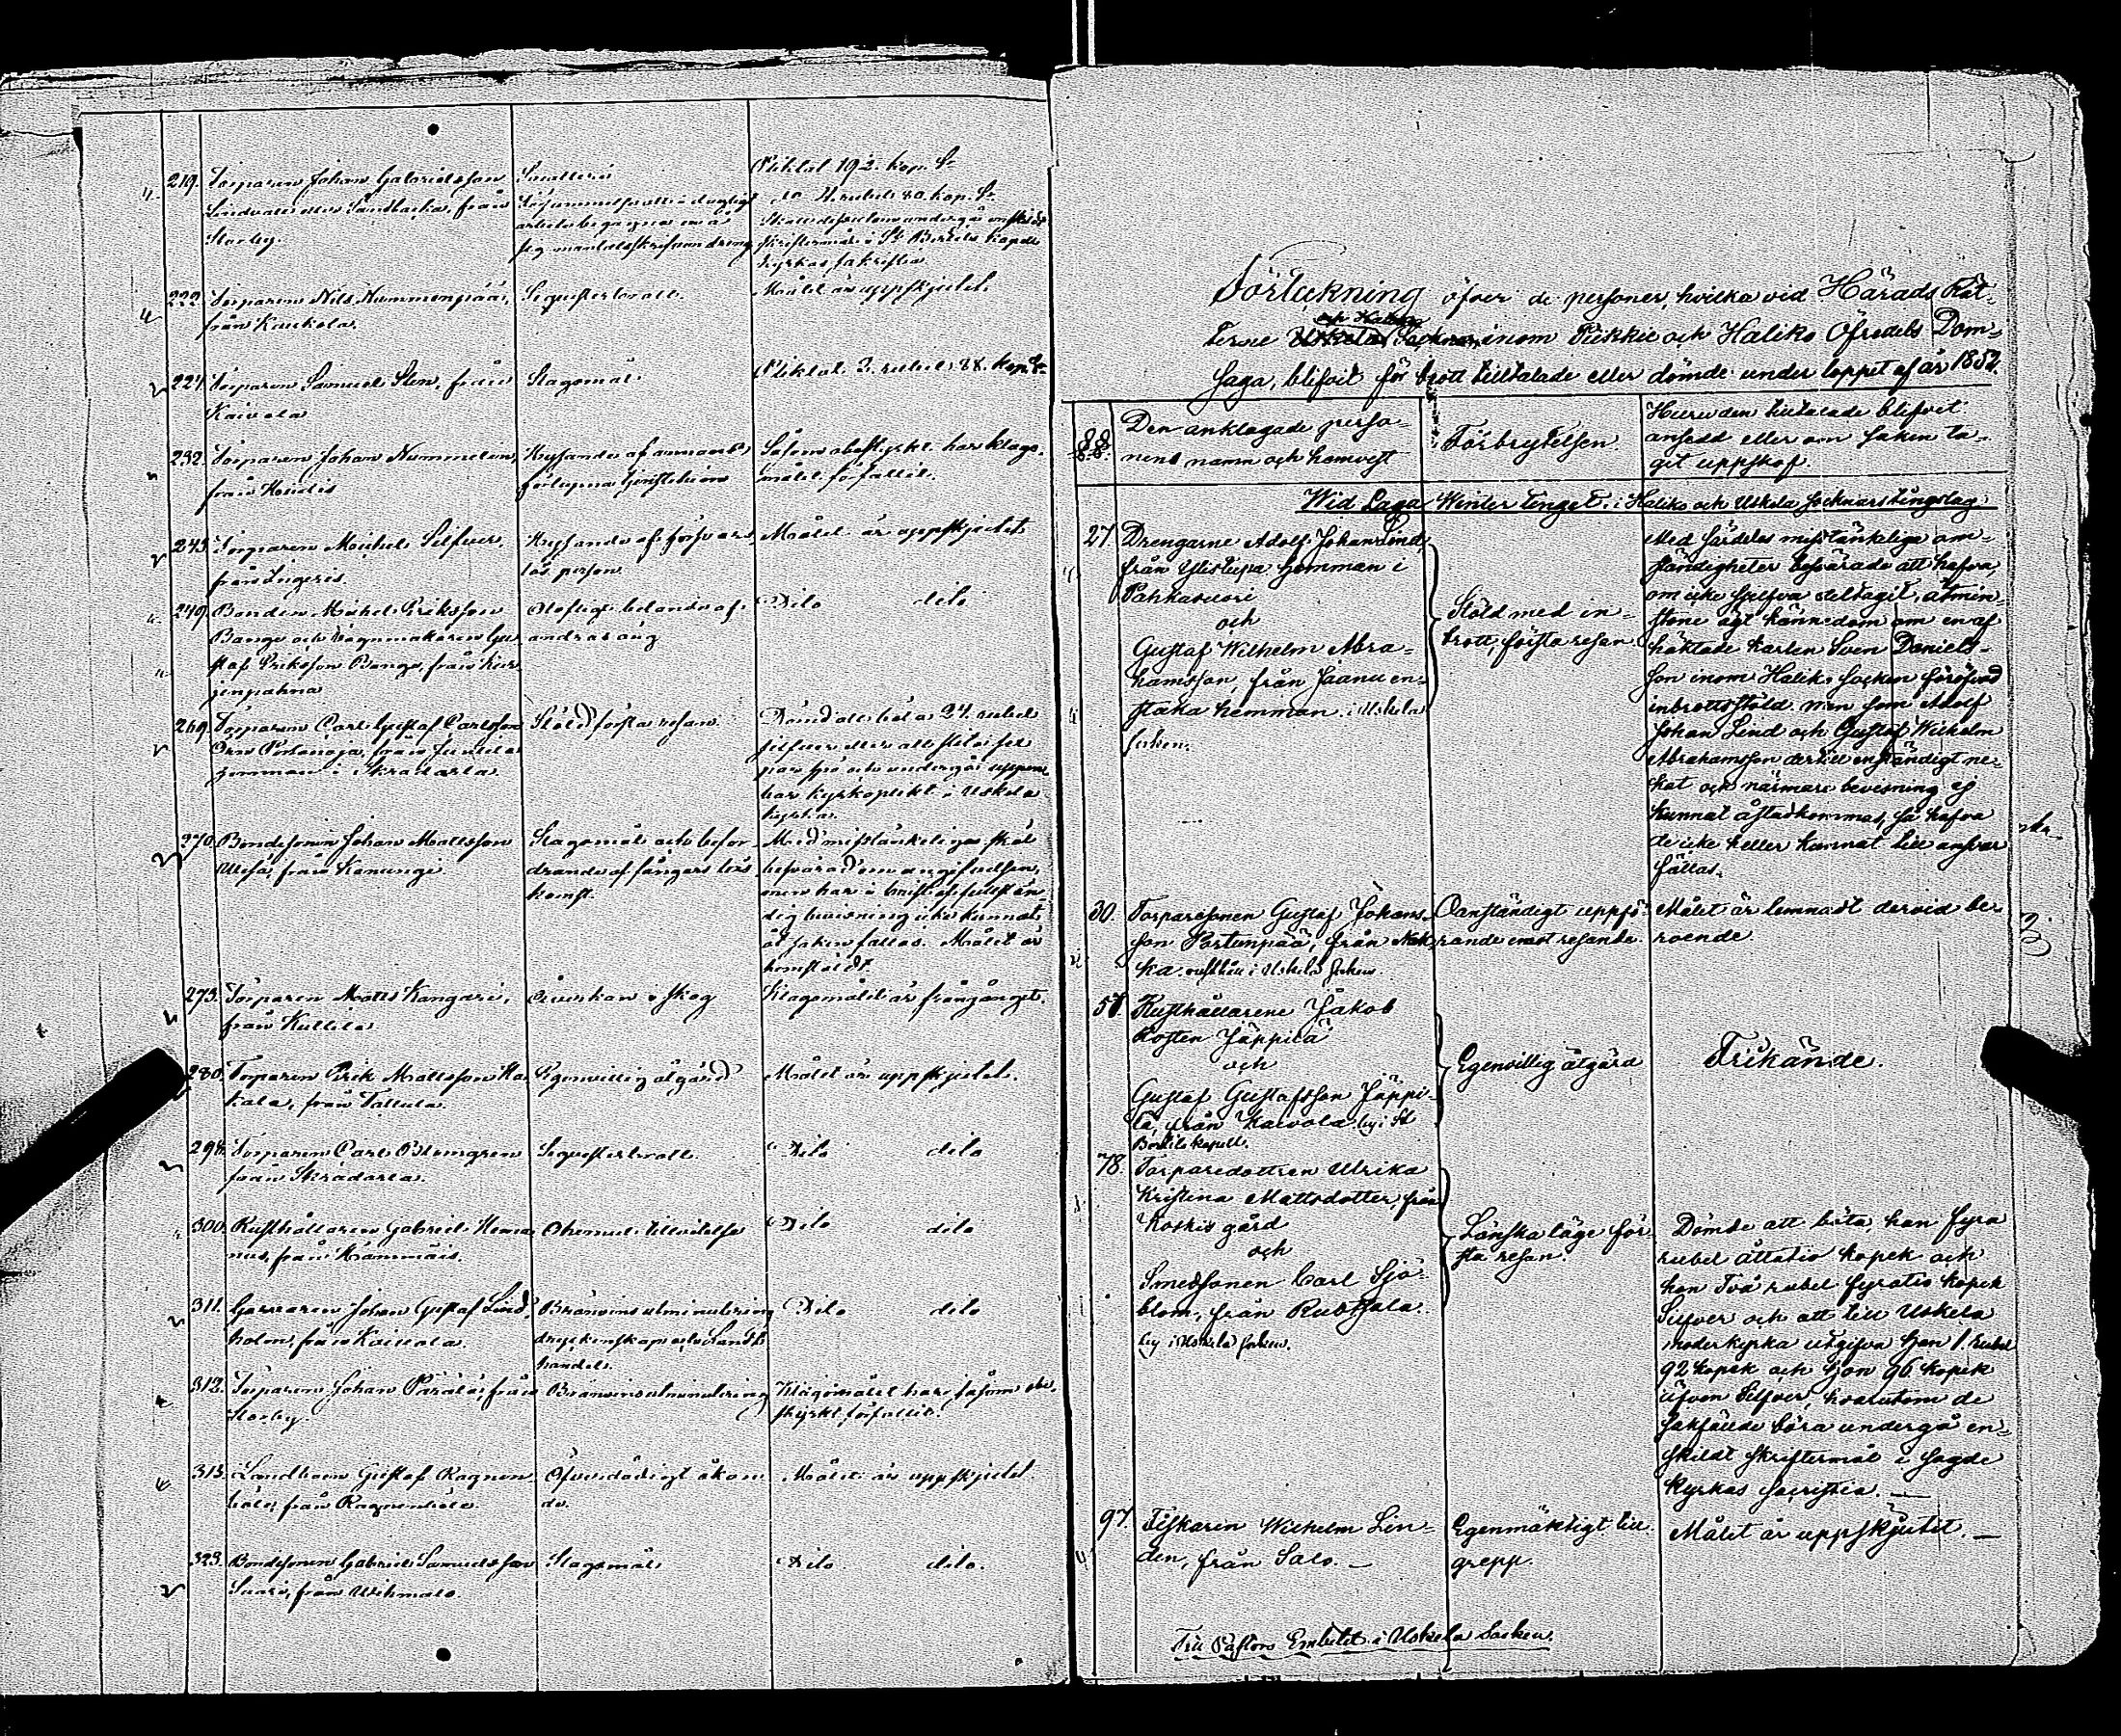 219. Torparen Johan Gabrielsson
Lindvall eller Sandbacka, från
Storby.
Snatteri
Pliktat 192. kop. Sr
do 4. rubel 80. kop. Sr
Skall dessutom undergå enskildt
skriftermål i St Bertils kapell
kyrkas sakristia
222. Torparen Nils Nummenpää,
från Kaukola.
Seqvesterbrott.
Målet är uppskjutet
224. Torparen Samuel Sten, från
Kaivola
Slagsmål.
Pliktat 3. rubel 88. kop. Sr
232. Torparen Johan Nummelin,
från
Hysande af annans
förlupna tjenstehion
Såsom obestyrkt har klago-
målet förfallit.
243. Torparen Michel Silfver,
från Ingeris
Hysande af försvars
lös person
Målet är uppskjutet
249. Bonden Michel Eriksson
Bange och vagnmakaren Gu-
staf Eriksson Bange, från
andras äng
Dito dito
269. Torparen Carl Gustaf Carlsson
hemman i Skradarla
Stöld första resan
Dömd att böta 24. rubel
silfver eller att slita fem
par spö och undergå uppen-
bar kyrkoplikt i Uskela
kyrka.
270. Bondesonen Johan Mattsson
Ulfsa, från Kanungi
Slagsmål och befor-
drande af fångars lös
komst.
Med misstänkeliga skäl
besvärad om angifvelsen,
men har i brist af fullstän-
dig bevisning icke kunnat
åt saken fällas. Målet är
hemstäldt.
273. Torparen Matts Kangari,
från Kullila
Åverkan å skog
Klagomålet är frångånget.
280. Torparen Erik Mattsson Ha-
kala, från Tattula.
Egenvillig åtgärd
Målet är uppskjutet.
298. Torparen Carl Blomgren
från Skradarla.
Seqvesterbrott
Dito dito
300. Rusthållaren Gabriel
från Hammais.
Ohemul tillvitelse
Dito dito
311. Garvaren Johan Gustaf Lind-
holm, från Kaivola.
Bränvinsutminutering
dryckenskap och Lands-
handel.
Dito dito
312. Torparen Johan Pärälä från
Storby.
Bränvinsutminutering
Klagomålet har, såsom obe-
styrkt, förfallit.
313. Landbonn Gustaf Ragnen-
från
Öfverdådigt åkan-
de.
Målet är uppskjutet
323. Bondesonen Gabriel Samuelsson
Suari, från Wihmalo.
Slagsmål
Dito dito.
Förtekning öfver de personer, hvilka vid Härads Rät-
terne och Haliko Uskela Socknar, inom Piikkie och Haliko Öfredels Dom-
saga, blifvit för brott tilltalade eller dömde under loppet af år 1852.
§§.
Den anklagade perso-
nens namn och hemvist
Förbrytelsen
Huru den tilltalade blifvit
ansedd eller om saken ta-
git uppskof.
Wid Laga Winter Tinget. i Haliko och Uskela Socknars tingslag.
27 Drengarne Adolf Johan Lind
från Ylistupa hemman i
Pahkavuori
och
Gustaf Wilhelm Abra-
hamsson, från Jaanu en-
staka hemman. i Uskela
socken.
Stöld med in-
brott, första resan
Med särdeles misstänkeliga om-
ständigheter besvärade att hafva,
om icke sjelfva deltagit, åtmin-
stone ägt kännedom om en af
häktade karlen Sven Daniels-
son inom Haliko socken föröfvad
inbrottsstöld. men som Adolf
Johan Lind och Gustaf Wilhelm
Abrahamsson dertill enständigt ne-
kat och närmare bevisning ej
kunnat åstadkommas, så hafva
de icke heller kunnat till ansvar
fällas.
30. Torparesonen Gustaf Johans-
son Portunpää, från Nok-
ka. rusthåll i Uskela socken
Oanständigt uppfö-
rande emot resande.
Målet är lemnadt dervid be-
roende.
57. Rusthållarene Jakob
Kosten Jäppilä
och
Gustaf Gustafsson Jäppi-
lä, från Kaivola by i St
Bertils kapell.
Egenvillig åtgärd
Frikände.
78. Torparedottren Ulrika
Kristina Mattsdotter, från
Koskis gård
och
Smedsonen Carl Sjö-
blom, från Ruotsala.
by i Uskela socken.
Lönskaläge för-
sta resan.
Dömde att böta, han fyra
rubel åttatio kopek och
hon Två rubel fyratio kopek
Silfver och att till Uskela
moderkyrka utgifva han 1. rubel
92 kopek och hon 96 kopek
äfven Silfver, hvarutom de
sakfällde böra undergå en-
skildt skriftermål i sagde
kyrkas sacristia. —
97. Fiskaren Wilhelm Lin-
den, från Salo. —
Egenmäktigt till-
grepp.
Målet är uppskjutit. —
Till Pastors Embetet i Uskela Socken.